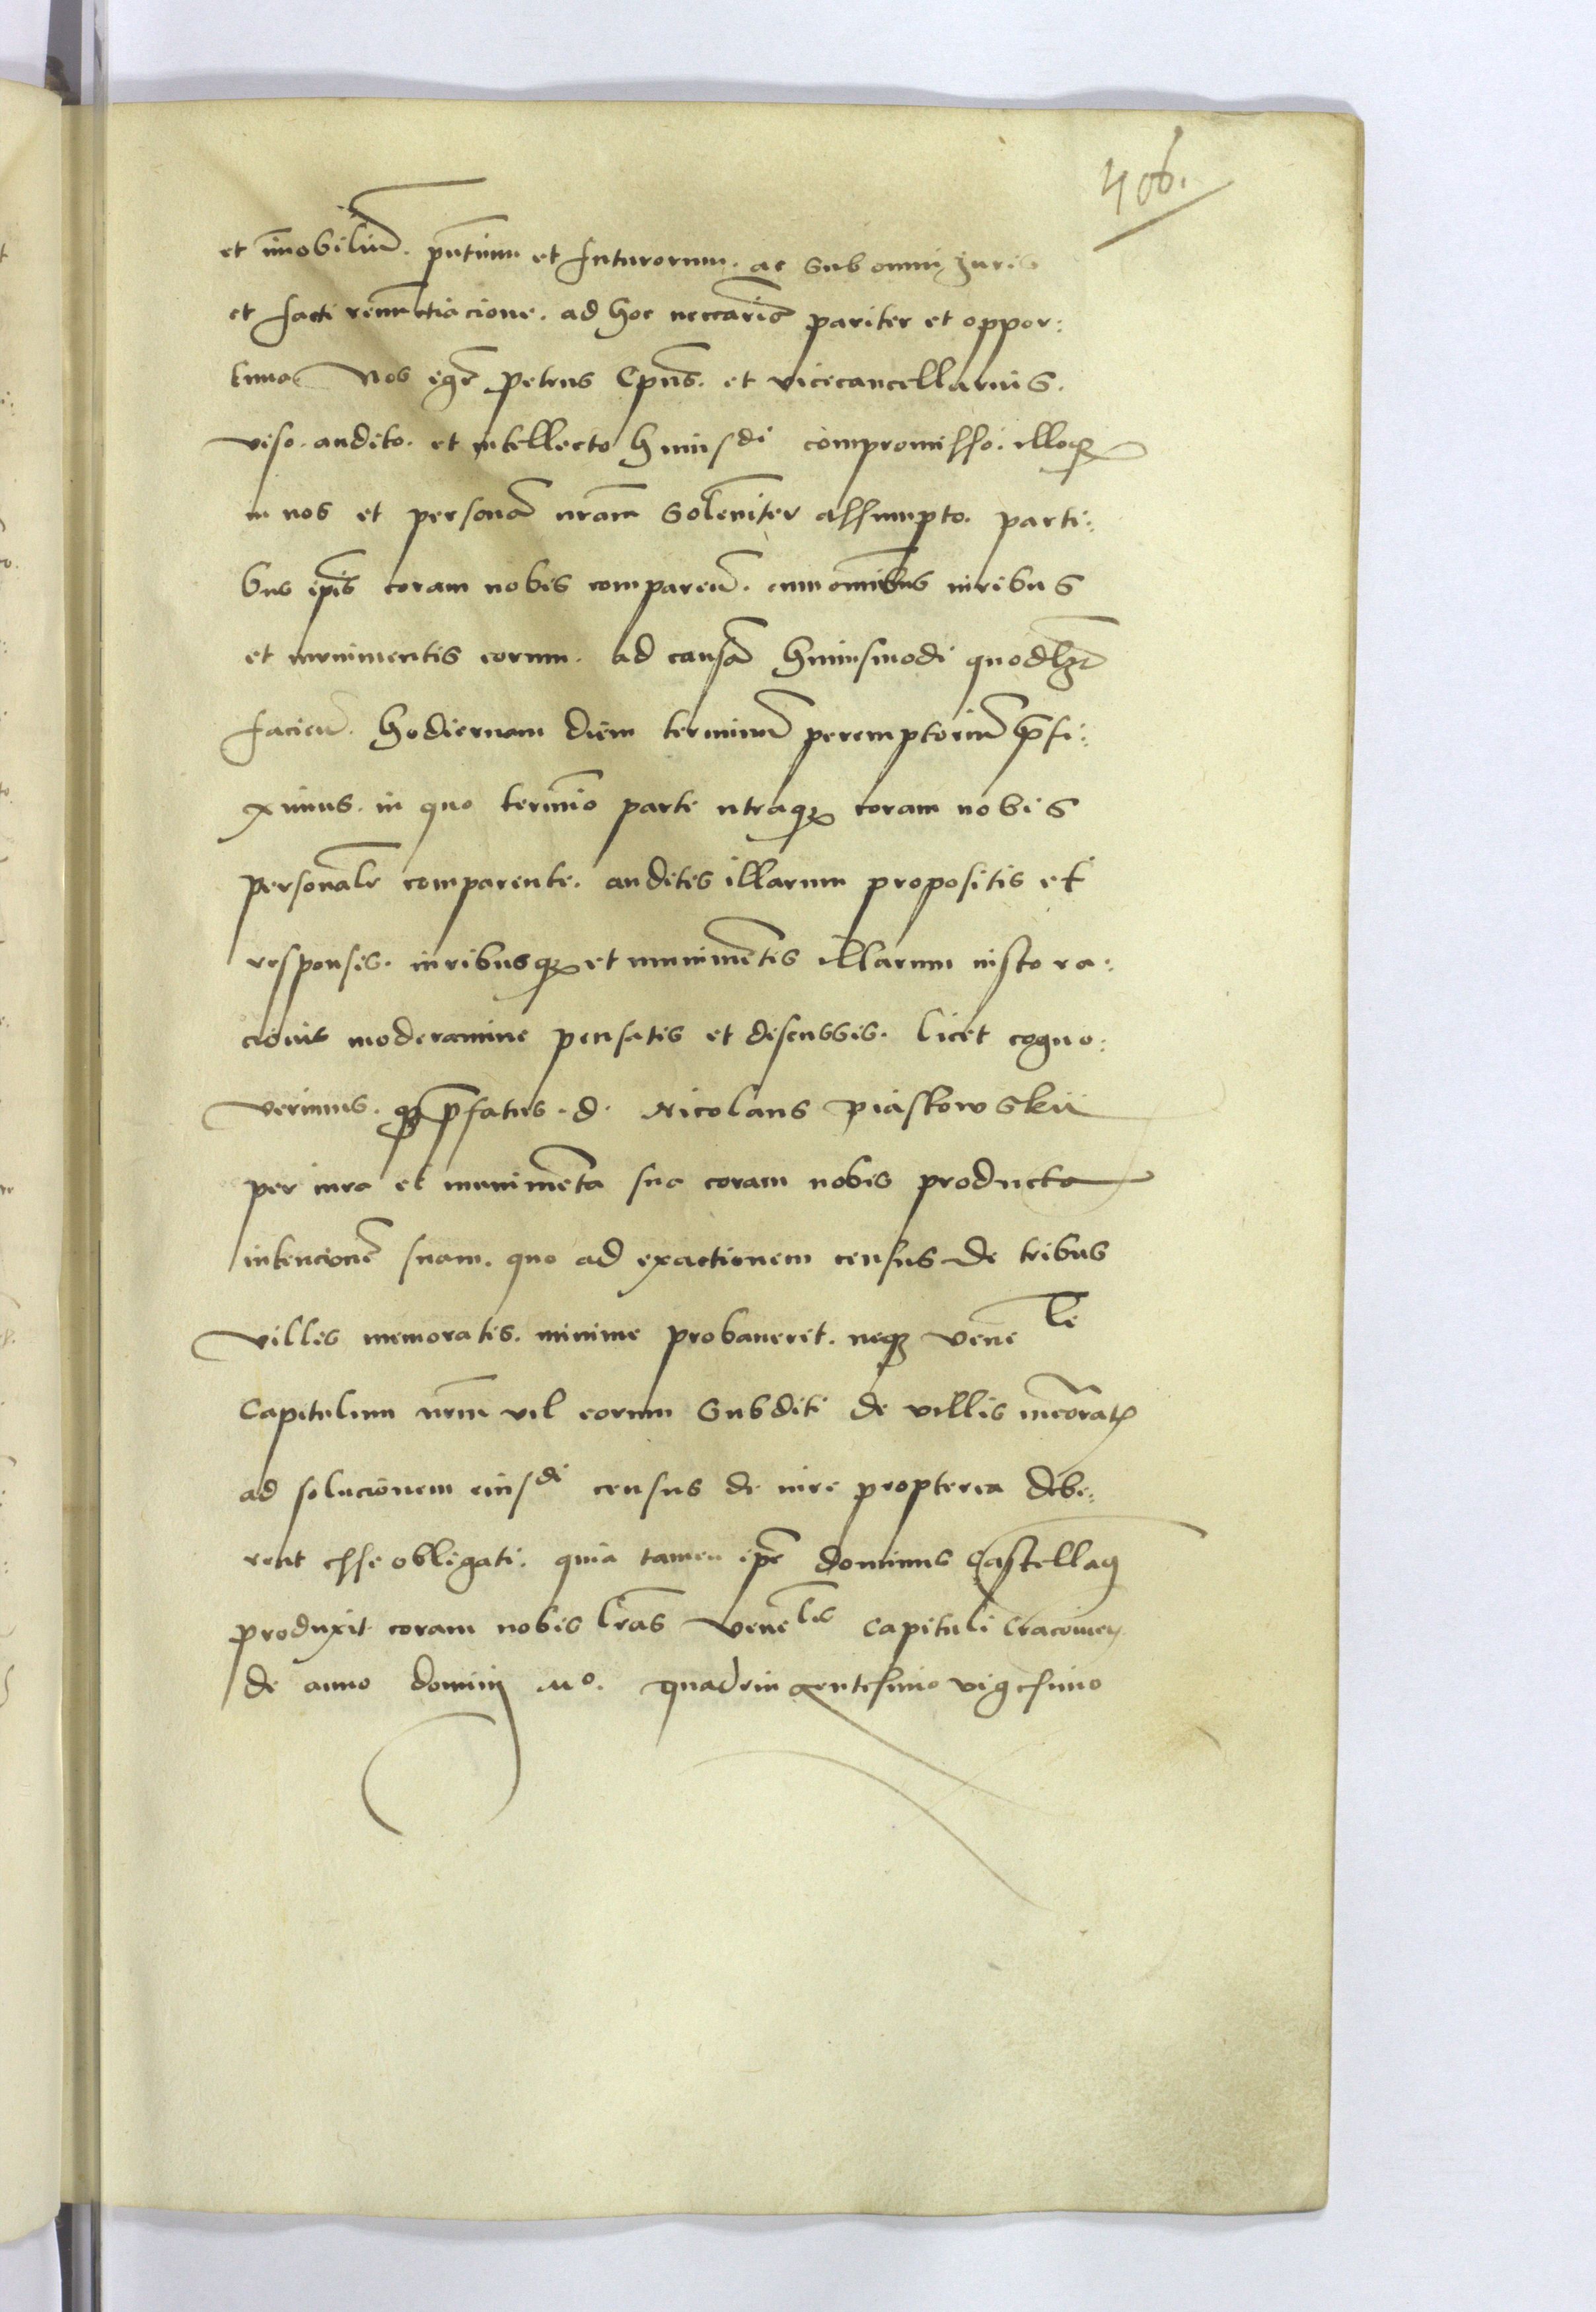 406.
et im̄obiliū. pn̄tium et futurorum. ac sub omni Juris
et facti renunctiacione. ad hoc nec̄cariis pariter et oppor:
tuna Nos igr̄ Petrus Ep̄us. et vicecancellarius.
viso. audito. et intellecto huiusdi compromisso. illoqꝫ
in nos et personā nr̄am Solenniter assumpto. parti:
bus ip̄is coram nobis comparen̄. cum omnibus iuribus
et munimentis eorum. ad causā huiusmodi quodlꝫt
facien̄. hodiernam diem terminū peremptoriū p̄fi:
ximus. in quo termīo parte utraqꝫ coram nobis
personalr̄ comparente. auditis illarum propositis et
responsis. iuribusqꝫ et munimētis illarum iusto ra:
cionis moderamine pensatis et discussis. licet cogno:
verimus. qꝫ p̄fatus. d. Nicolaus Piaskowskii
per iura et munimēta sua coram nobis producta
intencionē suam. quo ad exactionem census de tribus
villis memoratis. minime probaverit. neqꝫ vene le
Capitulum nr̄m vel eorum Subditi de villis memoratꝭ
ad solucionem eiusdi census de iure propterea debe:
rent esse obligati. quia tamen ip̄e dominus Castellanꝰ
produxit coram nobis lr̄as Venelis Capituli Cracovien̄
de anno domini Mo. quadringentesimo vigesimo